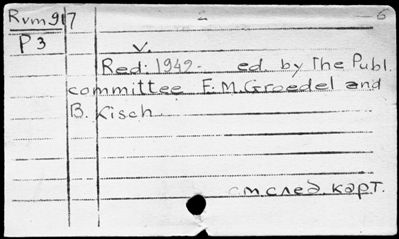 Rvm917
2 6
P3
v.
Red: 1942- ed. by The Publ.
committee F.M.Groedel and
B. Kisch
см.след.карт.